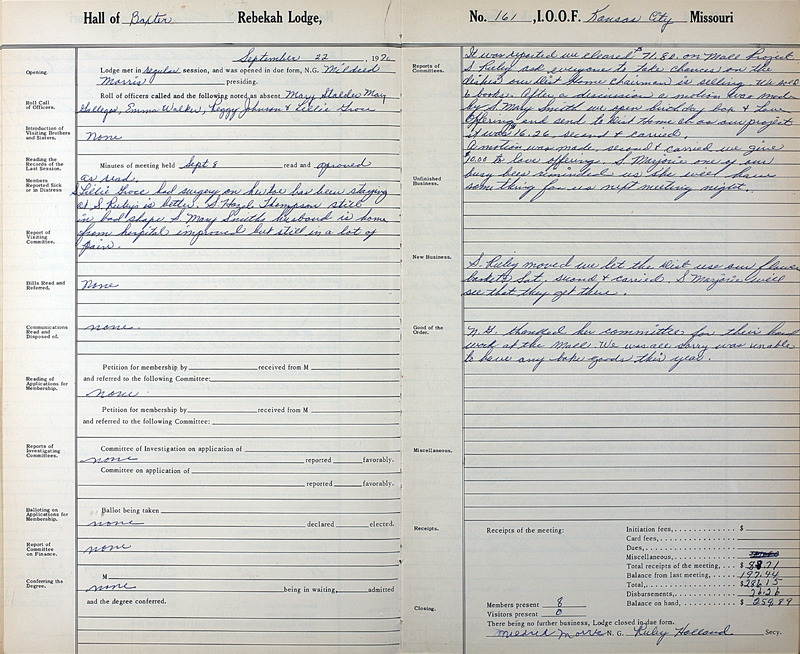 Hall of Baxter Rebekah Lodge,
September 22 197
Opening.
Lodge met in regular session, and was opened in due form, N.G. Mildred
Morris presiding.
Roll Call
of Officers.
Roll of officers called and the following noted as absent Mary Stalder May
Emma Walker, Peggy Johnson & Lillie Grove
Introduction of
Visiting Brothers
and Sisters.
None
Reading the
Records of the
Last Session.
Minutes of meeting held Sept 8 read and aproved
as read.
Members
Reported Sick
or in Distress
Lillie Grove had surgery on her toe has been staying
at S. Ruby's is better. S. Hazel Thompson still
in bad shape S. Mary Smiths husband is home
from hospital improved but still in a lot of
pain.
Report of
Visiting
Committee.
Bills Read and
Referred.
None
Communications
Read and
Disposed of.
none.
Petition for membership by received from M
Reading of
Applications for
Membership.
and referred to the following Committee:
none
Petition for membership by received from M
and referred to the following Committee:
Reports of
Investigating
Committees.
Committee of Investigation on application of
none reported favorably.
Committee on application of
reported favorably.
Balloting on
Applications for
Membership.
Ballot being taken
none declared elected.
Report of
Committee
on Finance.
none
Conferring the
Degree.
M
none being in waiting, admitted
and the degree conferred.
No. 161, I.O.O.F. Kansas City Missouri
Reports of
Committees.
It was reported we cleared $71.80 on Mall Project
S. Ruby ask everyone to take chances on the
dishes our Dist Home Chairman is selling. We sold
6 books. After a discussion a motion was made
by S. Mary Smith we open birthday box & Love
Offering and send to Dist Home as our project
it was $16.26 second & carried.
A motion was made, second & carried we give
$10.00 to love offering. S Marjorie one of our
busy bees reminded us she will have
something for us next meeting night.
Unfinished
Business.
New Business.
S. Ruby moved we let the Dist use our flower
baskets Sat. second & carried. S Marjorie will
see that they get there.
Good of the
Order.
N.G. thanked her committee for their hard
work at the Mall. We was all sorry was unable
to have any bake goods this year.
Miscellaneous.
Receipts.
Receipts of the meeting:
Initiation fees, $
Card fees,
Dues,
Miscellaneous,
Total receipts of the meeting, $ 88 71
Balance from last meeting, 197.44
Total, $286 15
Disbursements, 26.26
Balance on hand, $ 259.89
Members present 8
Visitors present 0
Closing.
There being no further business, Lodge closed in due form.
Mildred Morris N. G. Ruby Holland Secy.